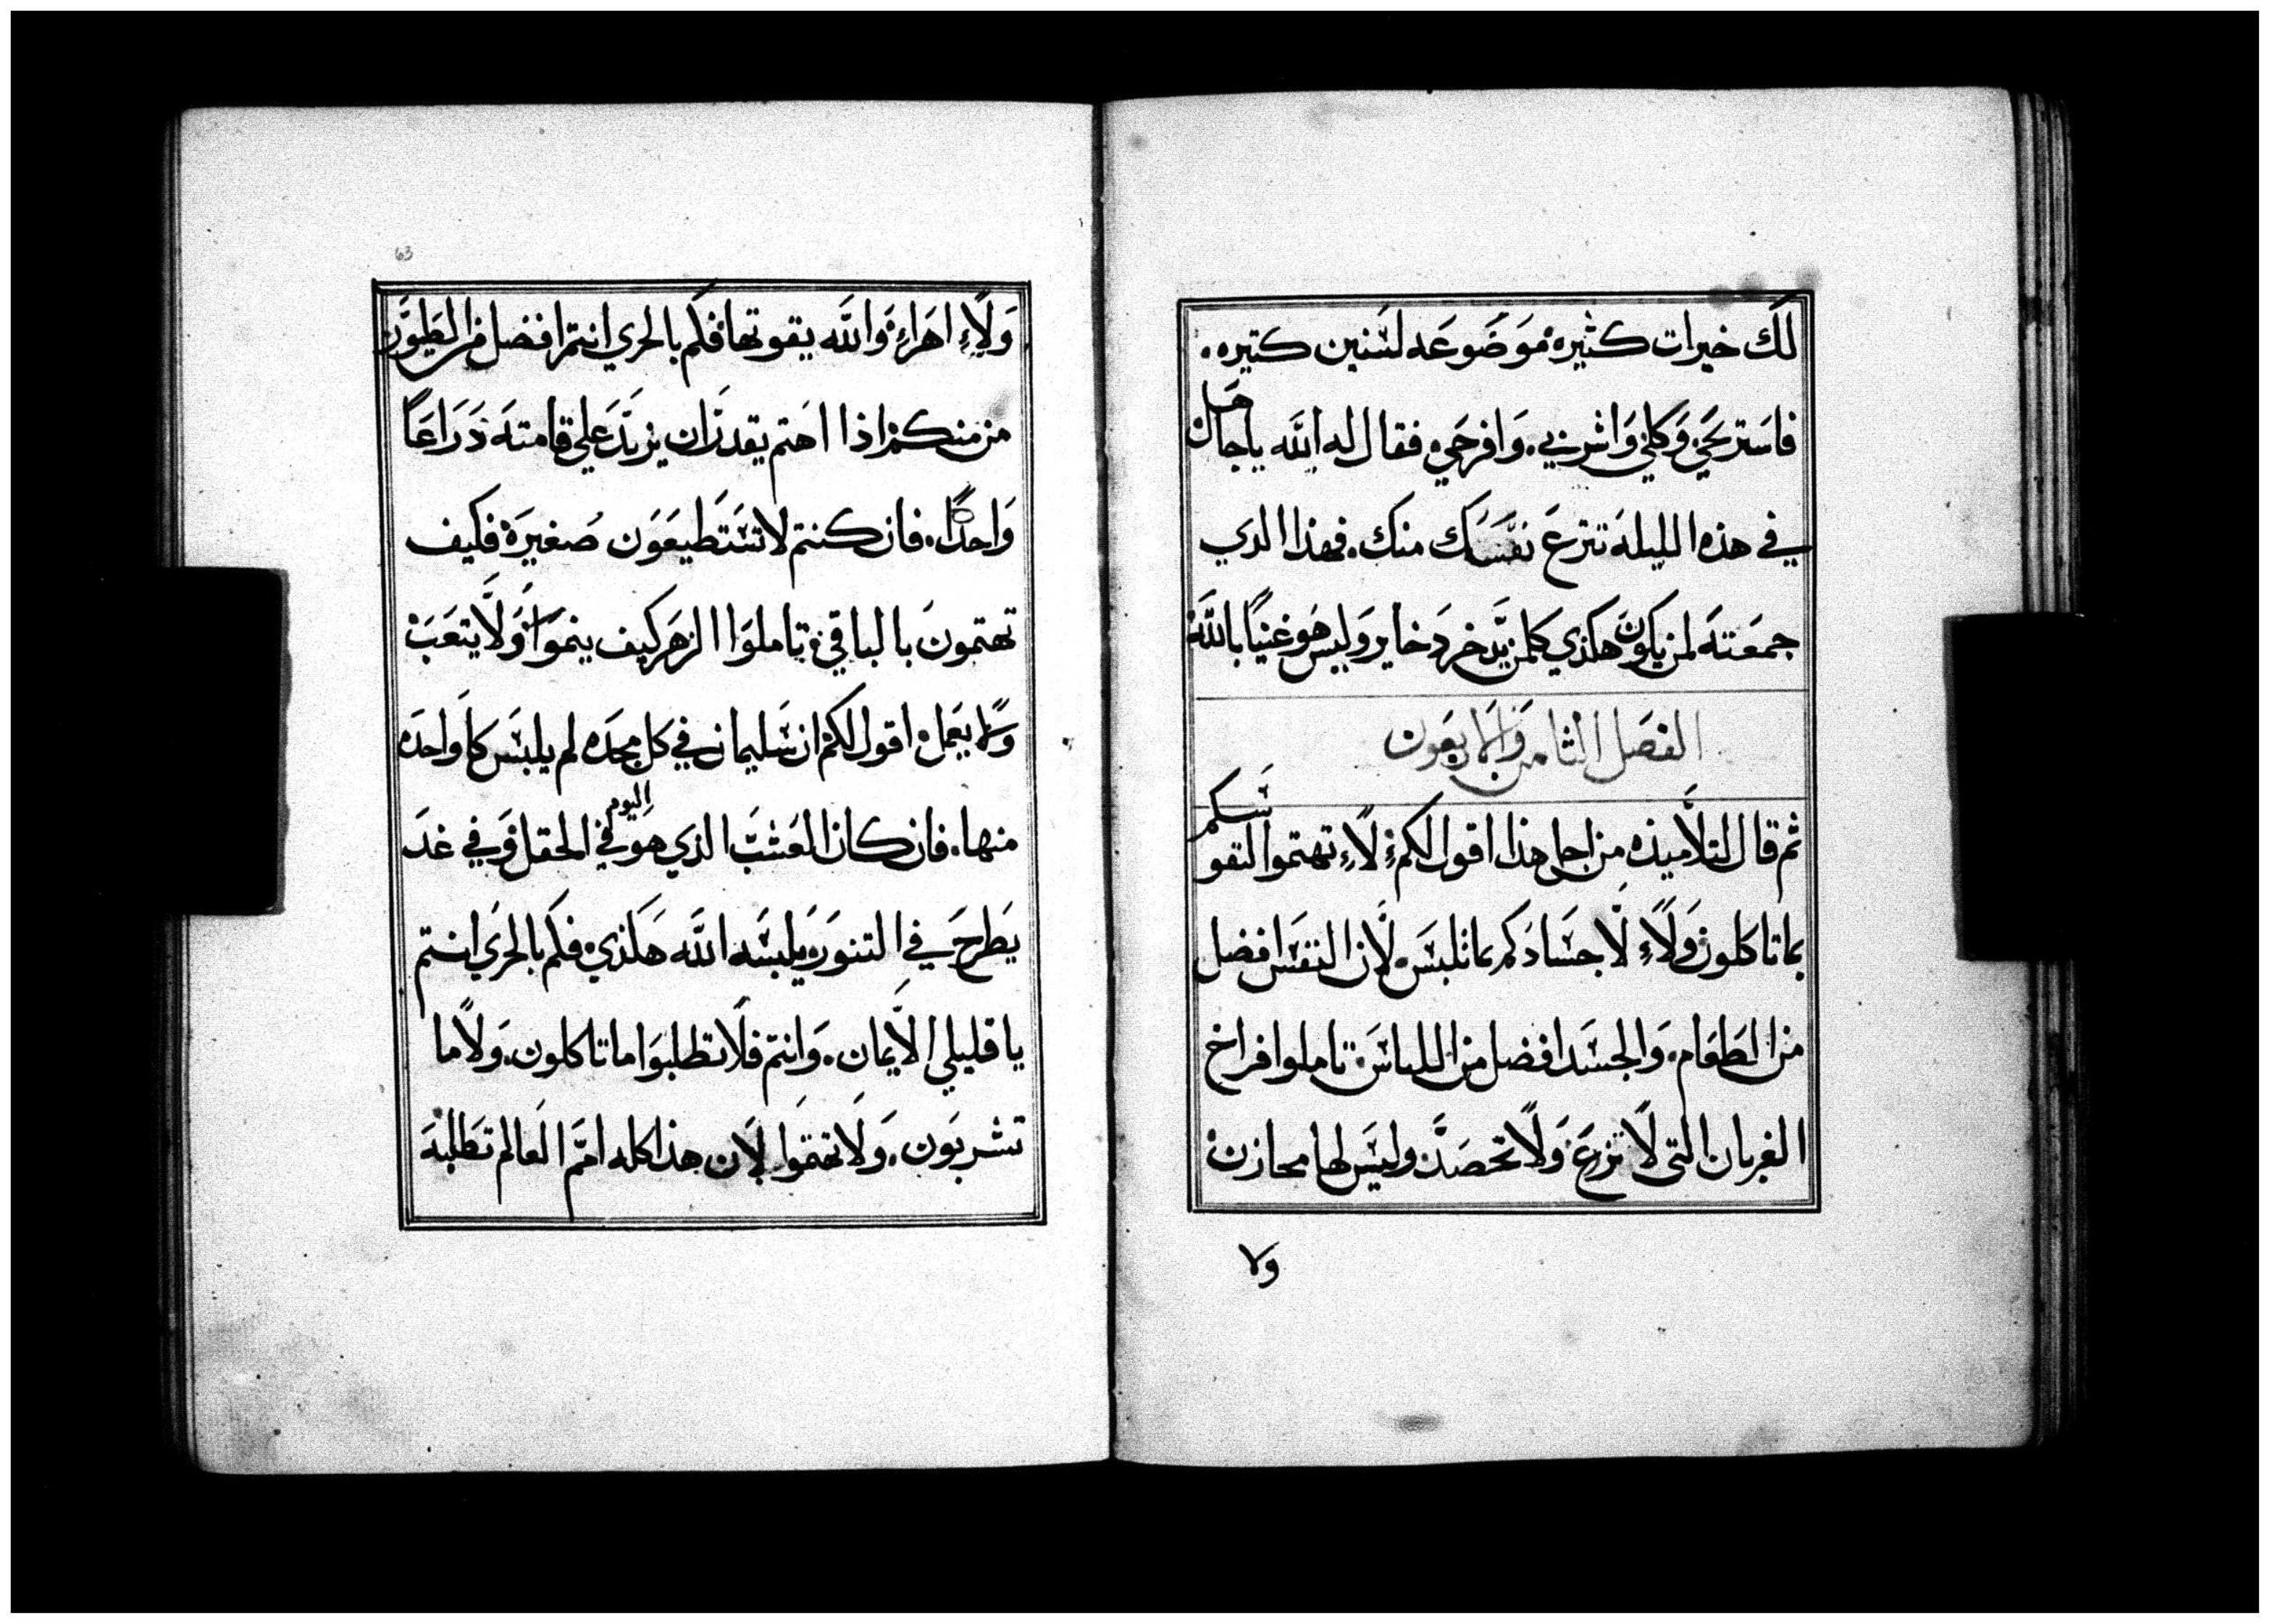 لك خيرات كثيره موضوعه لسنين كتيره.
فاستريحي وكلي واشربي. وافرحي. فقال له الله ياجاهل
في هذه الليله تنزع نفسك منك. فهذا الدي
جمعته لمن يكون هكذي كلمن يدخر دخاير وليس هو غنيا بالله
الفصل الثامن والاربعون
ثم قال لتلاميذه من اجل هذا اقول لكم لا تهتموا لنفوسكم
بما تاكلون ولا لاجسادكم بما تلبس لان النفس افضل
من الطعام. والجسد افضل من اللباس تاملوا فراخ
الغربان التى لا تزرع ولا تحصد وليس لها مخازن
ولا
63
ولا اهراء والله يقوتها فكم بالحري انتم افضل من الطيور
من منكم اذا اهتم يقدر ان يزيد علي قامته دراعا
واحدا. فان كنتم لا تستطيعون صغيرة فكيف
تهتمون بالباقي تاملوا الزهر كيف ينموا ولا يتعب
ولا يعمل اقول لكم ان سليمان في كل مجده لم يلبس كاواحده
منها. فان كان العشب الذي هو اليوم في الحقل وفي غد
يطرح في التنور يلبسه الله هكذي فكم بالحري انتم
يا قليلي الايمان. وانتم فلا تطلبوا ما تاكلون. ولا ما
تشربون. ولا تهتموا لان هذا كله امم العالم تطلبه